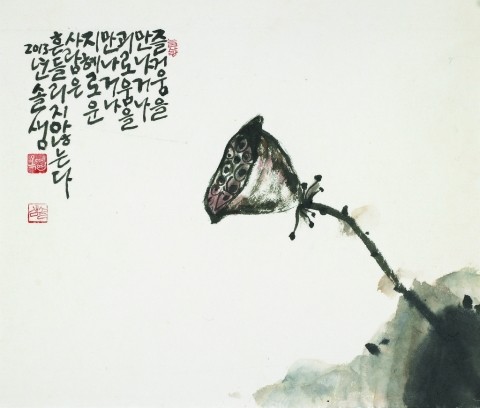 즐거움을
만나거나
괴로움을
만나거나
지혜로운
사람은
흔들리지않는다
2013년 솔샘